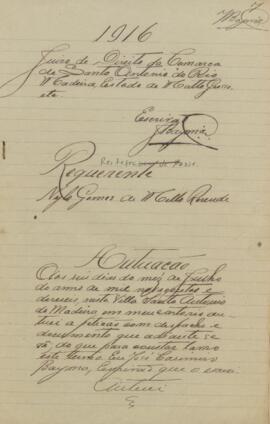 1916
Juizo de Direito da Comarca
de Santo Antonio do Rio
Madeira, Estado de Matto Gros-
Escrivão
Requerente
de Mello Rezende
Autuação
Aos seis dias do mez de Junho
do anno de mil novecentos e
dezeseis, nesta Villa Santo Antonio
do Madeira em meu cartorio au-
tuei a petição com despacho e
documento que adiante se
vê, do que para constar lavro
este termo. Eu José Casimiro
Bayma, Escrivão que o escrevi
Autuei